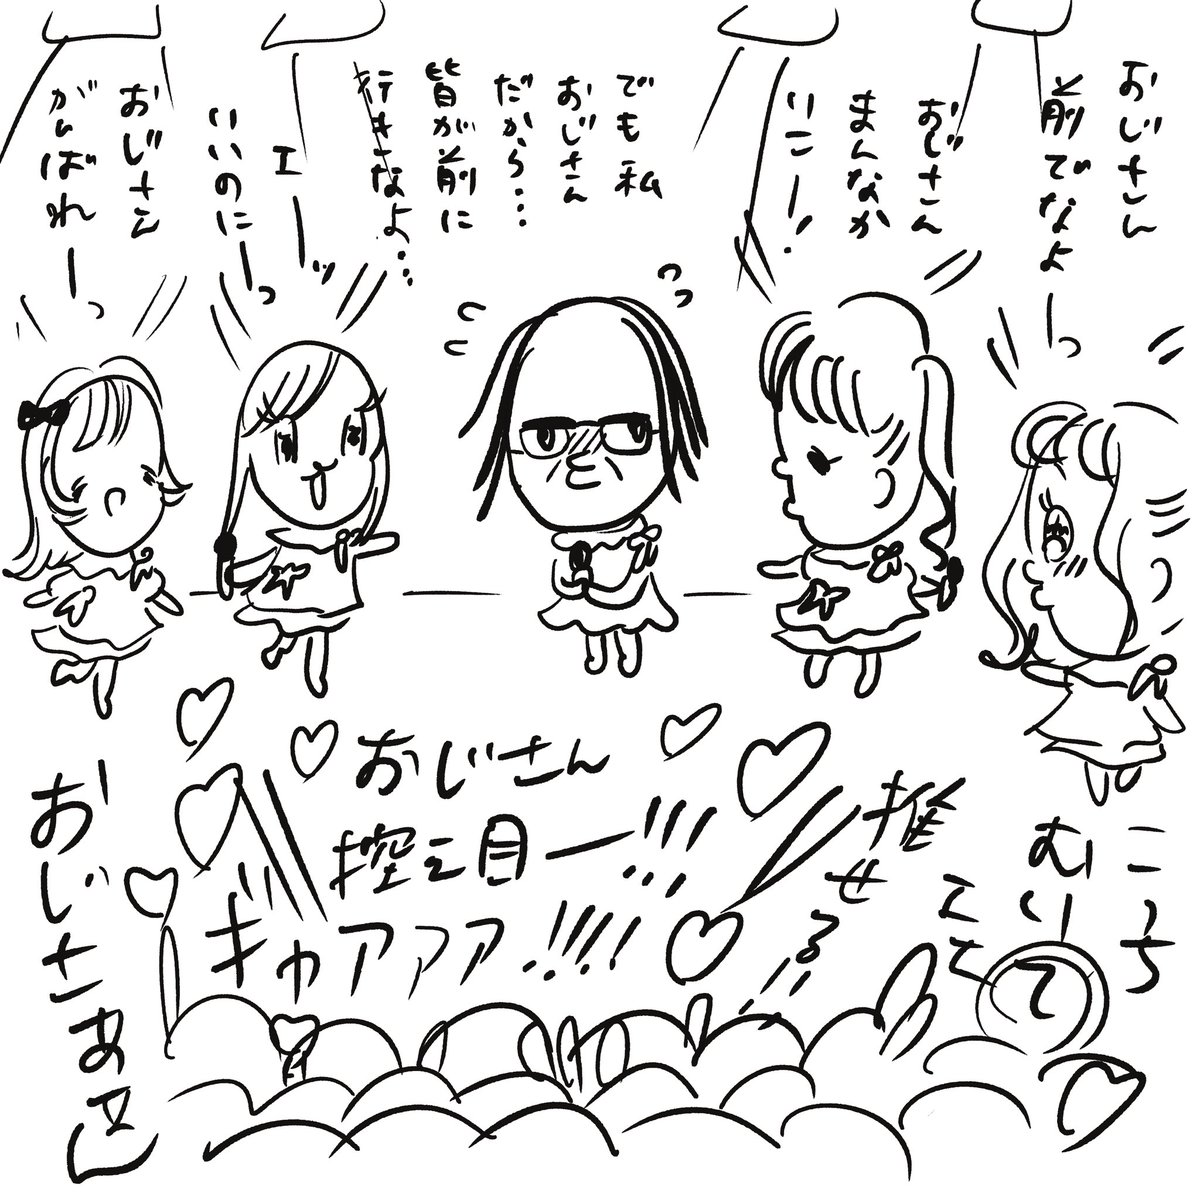 おじさん
前でなよーっ
おじさん
まんなか
いこー!
でも私
おじさん
だから…
皆が前に
行きなよ…
エーッ
いいのにーっ
おじさん
がんばれーっ
おじさん
控え目ー!!!
ギャアアア!!!!
推せる!!
こっち
むいてー
おじさぁ